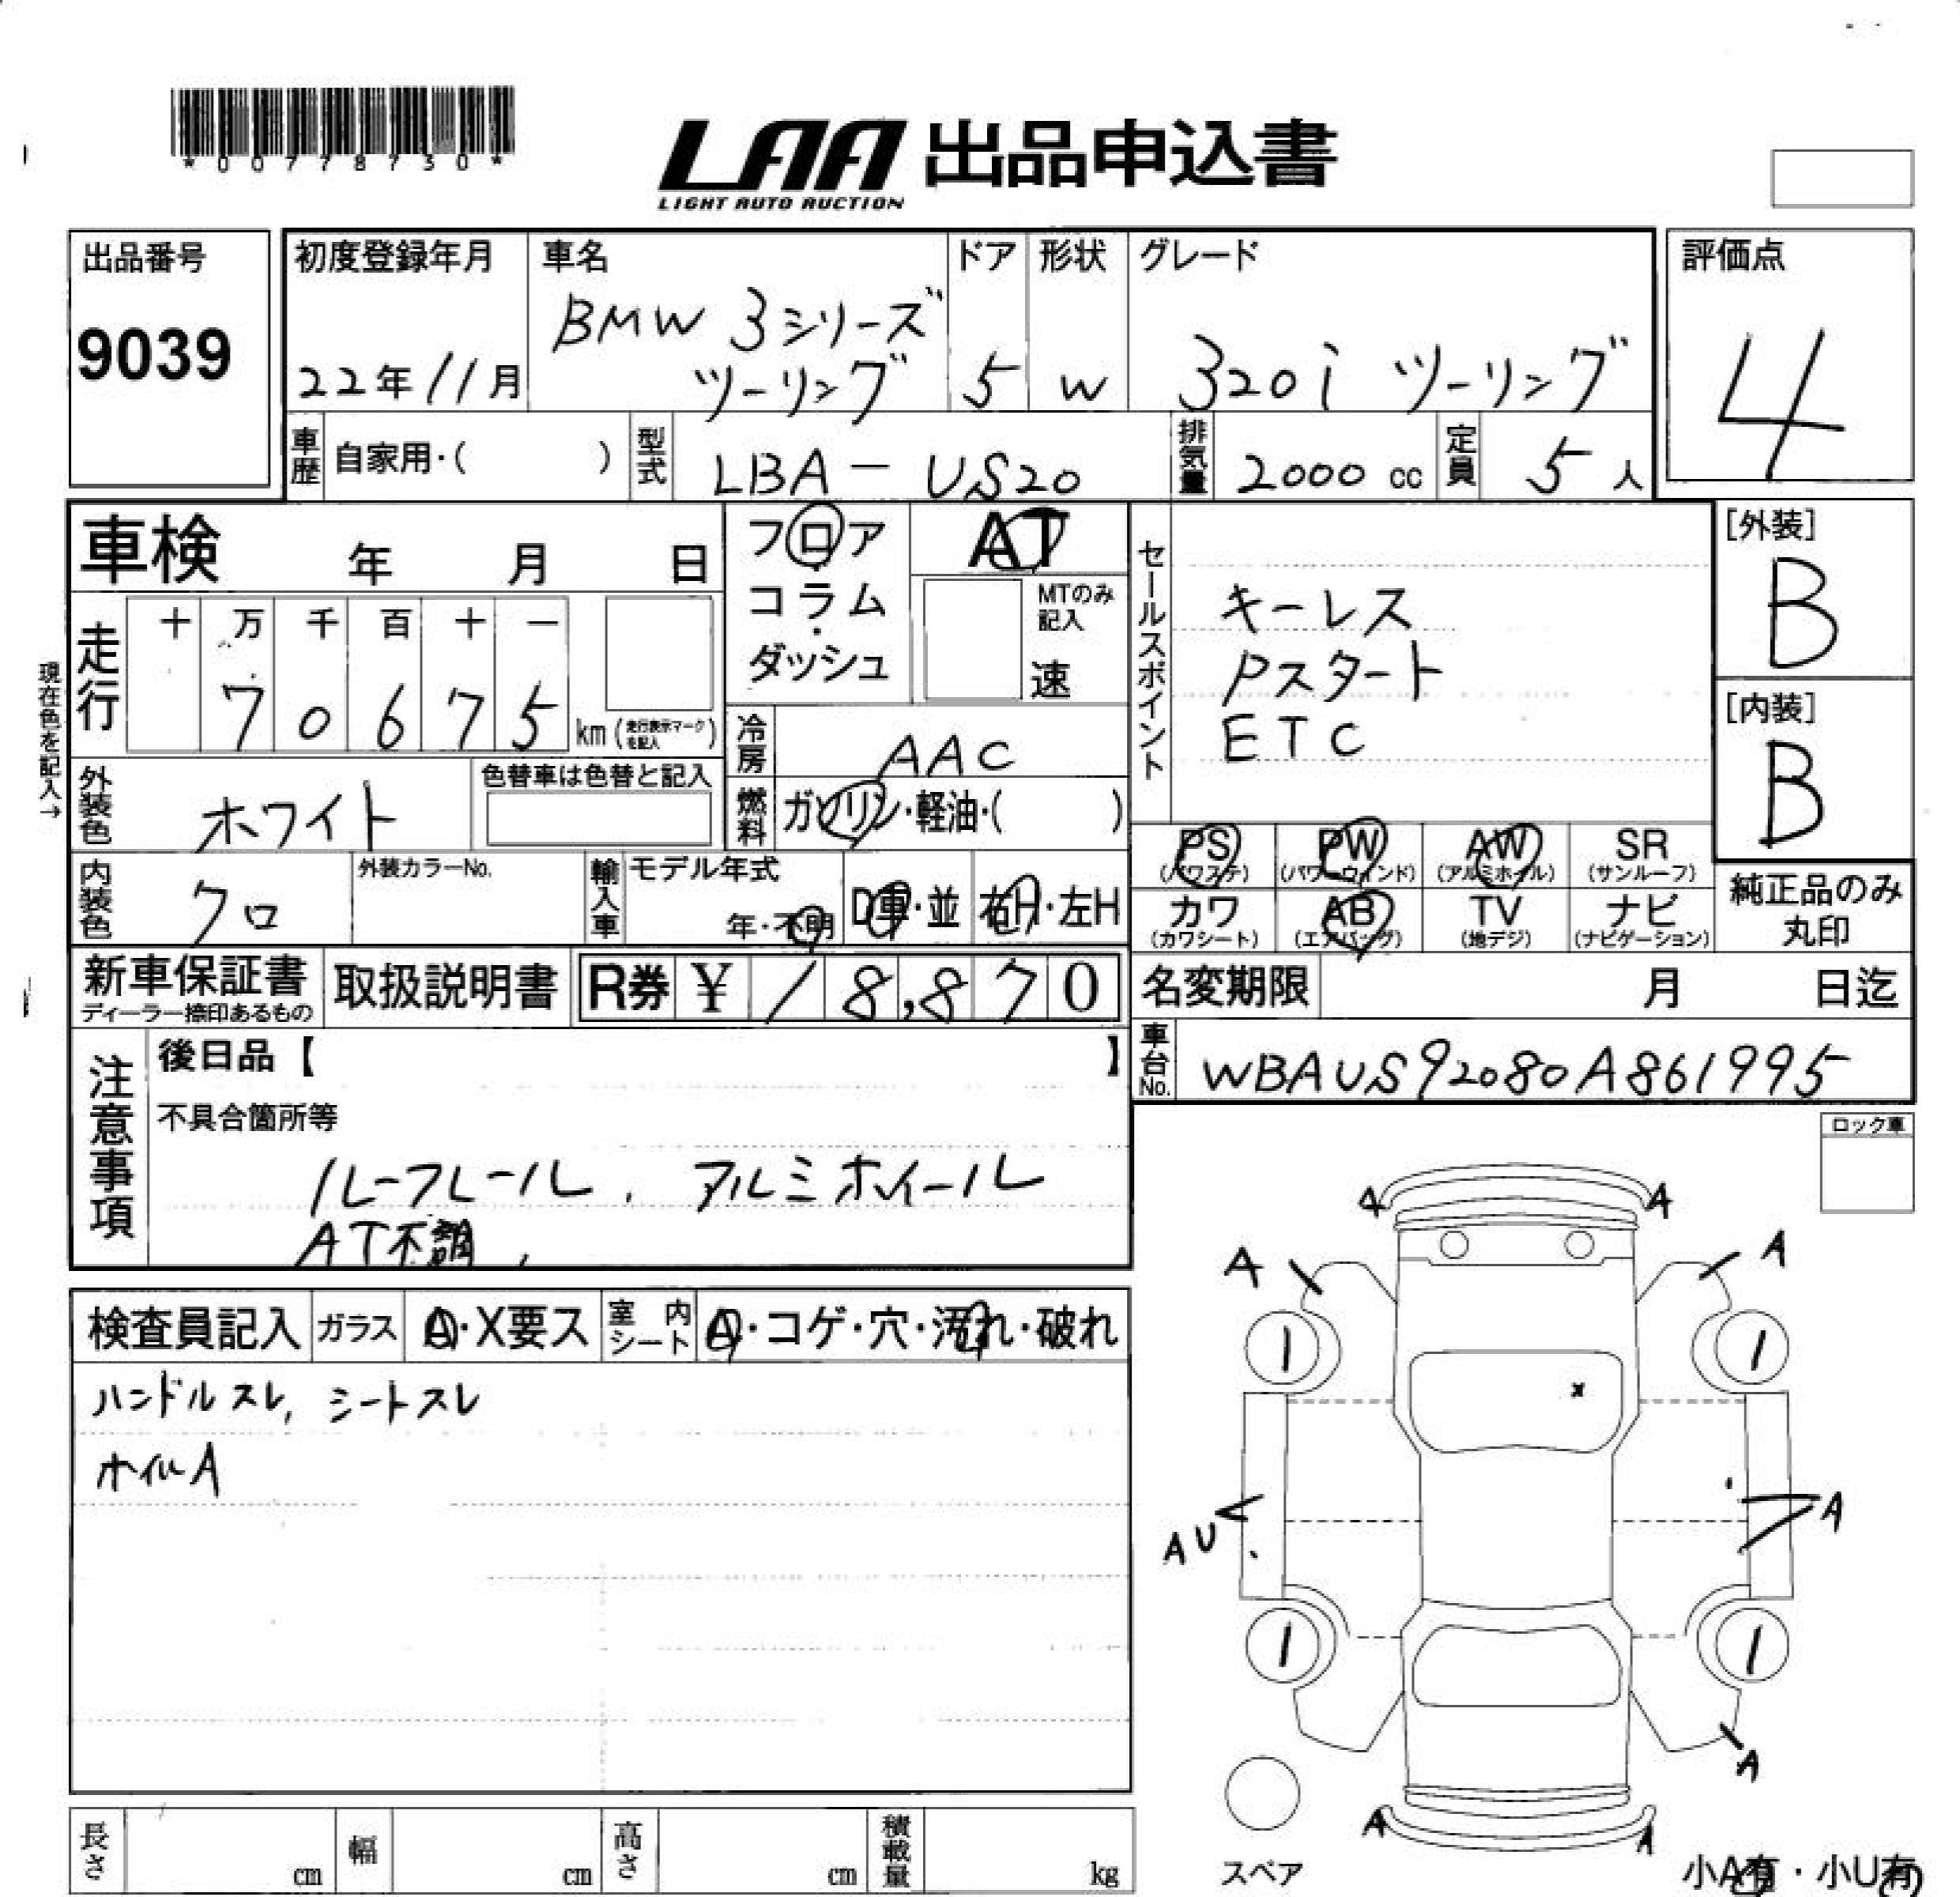 *00778730*
LAA 出品申込書
LIGHT AUTO AUCTION
出品番号
9039
初度登録年月
22年11月
車名
BMW 3シリーズ
ツーリング
ドア
5
形状
W
グレード
320i ツーリング
評価点
4
車歴 自家用・( )
型式 LBA-US20
排気量 2000 cc
定員 5 人
車検 年 月 日
フロア
・
コラム
・
ダッシュ
AT
MTのみ
記入
速
セールスポイント
キーレス
Pスタート
ETC
[外装]
B
[内装]
B
現在色を記入→
走行
十 万 千 百 十 一
7 0 6 7 5 km (走行表示マークを記入)
冷房 AAC
外装色 ホワイト
色替車は色替と記入
燃料 ガソリン・軽油・( )
内装色 クロ
外装カラーNo.
輸入車
モデル年式
年・不明
D車・並
右H・左H
PS (パワステ)
PW (パワーウィンド)
AW (アルミホイル)
SR (サンルーフ)
カワ (カワシート)
AB (エアバッグ)
TV (地デジ)
ナビ (ナビゲーション)
純正品のみ
丸印
新車保証書
ディーラー捺印あるもの
取扱説明書
R券 ¥ 18,870
名変期限 月 日迄
車台No. WBAUS92080A861995
注意事項
後日品【 】
不具合箇所等
ルーフレール, アルミホイール
AT不調,
ロック車
検査員記入
ガラス A・X要ス
室内シート A・コゲ・穴・汚れ・破れ
ハンドルスレ, シートスレ
ホイルA
A A
A A
1 1
x
AU A
1 1
A
A A
スペア
小A有・小U有
長さ cm
幅 cm
高さ cm
積載量 kg